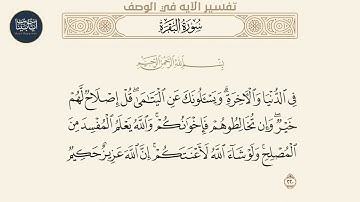 تفسير الآيه في الوصف
سُورَةُ البَقَرَةِ
بِسْمِ اللَّهِ الرَّحْمَٰنِ الرَّحِيمِ
فِي الدُّنْيَا وَالْآخِرَةِ ۗ وَيَسْـَٔلُونَكَ عَنِ الْيَتَامَىٰ ۖ قُلْ إِصْلَاحٌ لَّهُمْ
خَيْرٌ ۖ وَإِن تُخَالِطُوهُمْ فَإِخْوَانُكُمْ ۚ وَاللَّهُ يَعْلَمُ الْمُفْسِدَ مِنَ
الْمُصْلِحِ ۚ وَلَوْ شَاءَ اللَّهُ لَأَعْنَتَكُمْ ۚ إِنَّ اللَّهَ عَزِيزٌ حَكِيمٌ ٢٢٠